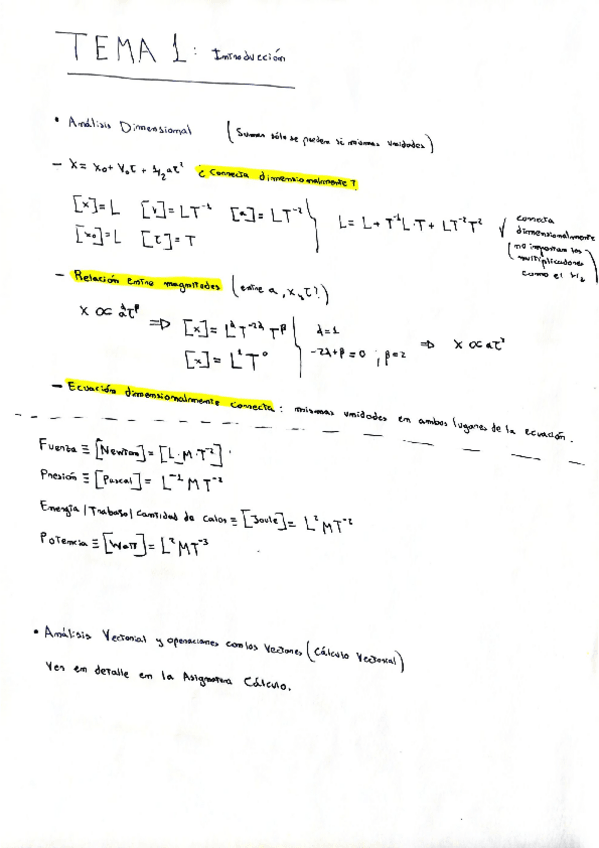 TEMA 1: Introducción
• Análisis Dimensional (Sumas sólo se pueden si mismas unidades)
- x = x₀ + v₀t + 1/2 at² ¿Correcta dimensionalmente?
[x]=L [v]=LT⁻¹ [a]=LT⁻² L = L + T⁻¹L·T + LT⁻²T² √ correcta dimensionalmente (no importan los multiplicadores como el 1/2
[x₀]=L [t]=T
- Relación entre magnitudes (entre a, x, t?)
x ∝ a^λ t^β => [x] = L^λ T^-2λ T^β λ=1
[x] = L¹T⁰ -2λ+β=0 ; β=2 => x ∝ at²
- Ecuación dimensionalmente correcta: mismas unidades en ambos lugares de la ecuación.
Fuerza ≡ [Newton] = [L·M·T⁻²]
Presión ≡ [Pascal] = L⁻¹MT⁻²
Energía/Trabajo/Cantidad de calor ≡ [Joule] = L²MT⁻²
Potencia ≡ [Watt] = L²MT⁻³
• Análisis Vectorial y operaciones con los Vectores (Cálculo Vectorial)
Ver en detalle en la Asignatura Cálculo.